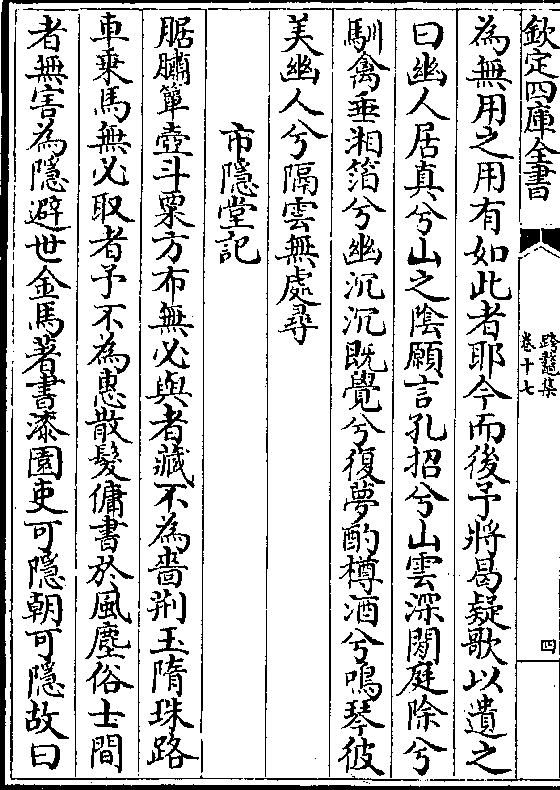 欽定四庫全書
跨鼇集
卷十七
四
為無用之用有如此者耶今而後予將曷疑歌以遺之
曰幽人居真兮山之陰願言孔招兮山雲深閒庭除兮
馴禽垂湘箔兮幽沉沉既覺兮復夢酌樽酒兮鳴琴彼
美幽人兮隔雲無處尋
市隱堂記
腒鱐簞壺斗粟方布無必與者藏不為嗇荆玉隋珠路
車乗馬無必取者予不為惠散髮傭書於風塵俗士間
者無害為隱避世金馬著書漆園吏可隱朝可隱故曰